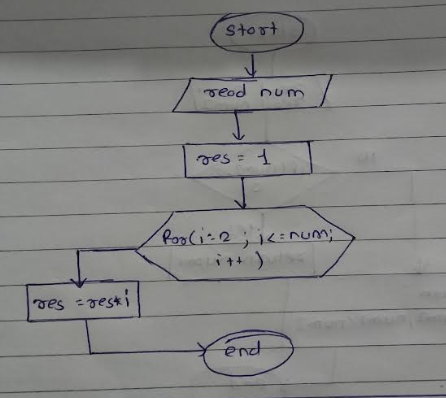 start
read num
res = 1
for(i=2 ; i<=num;
i++ )
res = res*i
end